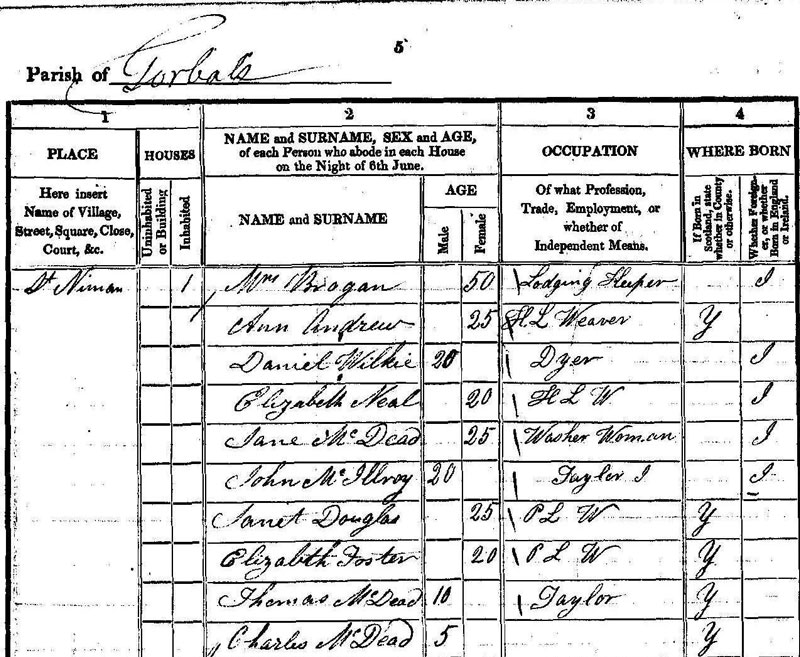 5
Parish of Gorbals
1 2 3 4
PLACE HOUSES NAME and SURNAME, SEX and AGE, of each Person who abode in each House on the Night of 6th June. OCCUPATION WHERE BORN
Here insert Name of Village, Street, Square, Close, Court, &c. Uninhabited or Building Inhabited NAME and SURNAME AGE Male Female Of what Profession, Trade, Employment, or whether of Independent Means. If Born in Scotland, state whether in County or otherwise. Whether Foreigner, or whether Born in England or Ireland.
Do Ninian 1 Mrs Brogan 50 Lodging Keeper I
Ann Andrew 25 H L Weaver Y
Daniel Wilkie 20 Dyer I
Elizabeth Neal 20 H L W I
Jane McDead 25 Washer Woman I
John McIllroy 20 Taylor J I
Janet Douglas 25 P L W Y
Elizabth Foster 20 P L W Y
Thomas McDead 10 Taylor Y
Charles McDead 5 Y